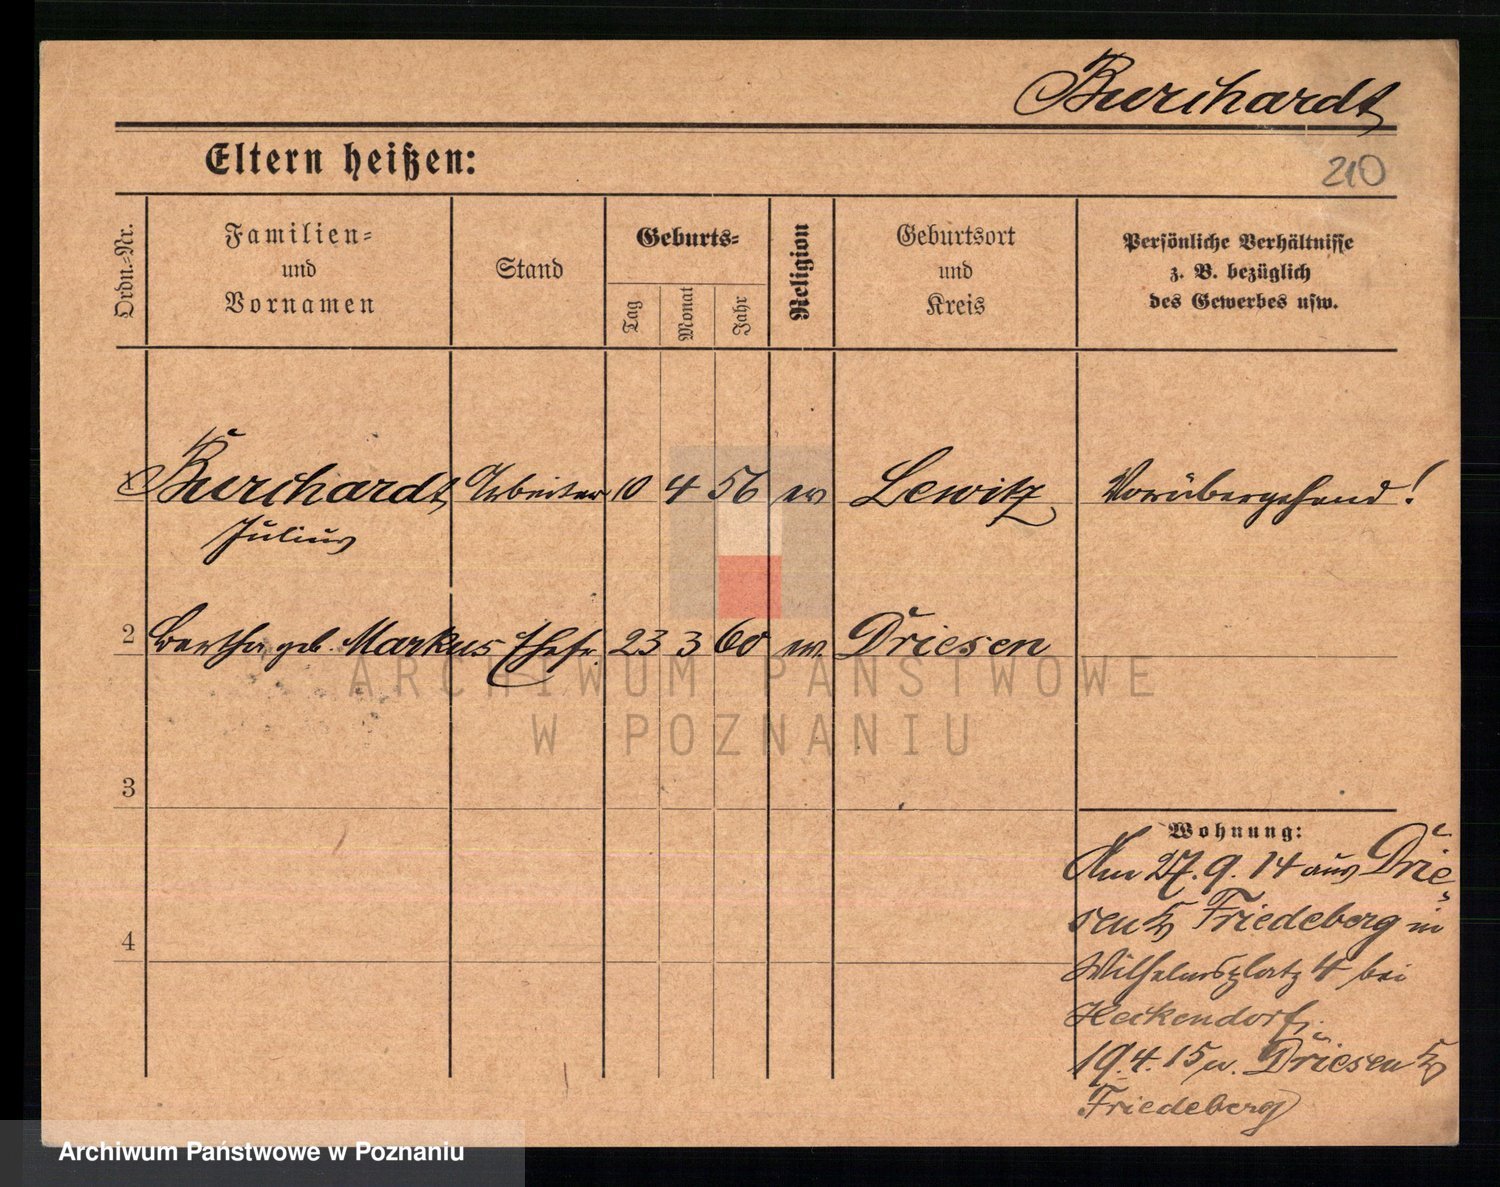 Burchardt
Eltern heißen:
210
Ordn.-Nr.
Familien-
und
Vornamen
Stand
Geburts-
Tag
Monat
Jahr
Religion
Geburtsort
und
Kreis
Persönliche Verhältnisse
z. B. bezüglich
des Gewerbes usw.
1 Burchardt Arbeiter 10 4 56 ev Lewitz Vorübergehend!
Julius
2 Bertha geb. Markus Ehefr. 23 3 60 ev. Driesen
ARCHIWUM PAŃSTWOWE
W POZNANIU
3
Wohnung:
Am 27.9.14 aus Drie-
sen Kr Friedeberg in
4
Wilhelmsplatz 4 bei
Heckendorf.
19.4.15 n. Driesen Kr
Friedeberg
Archiwum Państwowe w Poznaniu